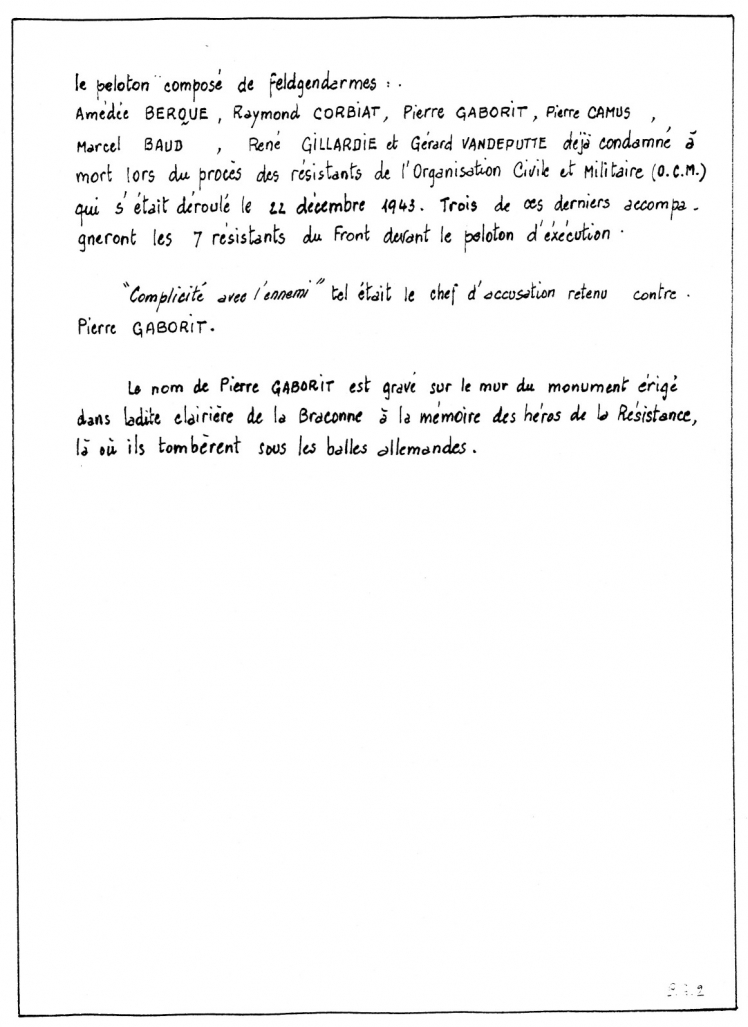 le peloton composé de feldgendarmes :.
Amédée BERQUE, Raymond CORBIAT, Pierre GABORIT, Pierre CAMUS,
Marcel BAUD, René GILLARDIE et Gérard VANDEPUTTE déjà condamné à
mort lors du procès des résistants de l'Organisation Civile et Militaire (O.C.M.)
qui s'était déroulé le 22 décembre 1943. Trois de ces derniers accompa-
gneront les 7 résistants du Front devant le peloton d'exécution.
"Complicité avec l'ennemi" tel était le chef d'accusation retenu contre.
Pierre GABORIT.
Le nom de Pierre GABORIT est gravé sur le mur du monument érigé
dans ladite clairière de la Braconne à la mémoire des héros de la Résistance,
là où ils tombèrent sous les balles allemandes.